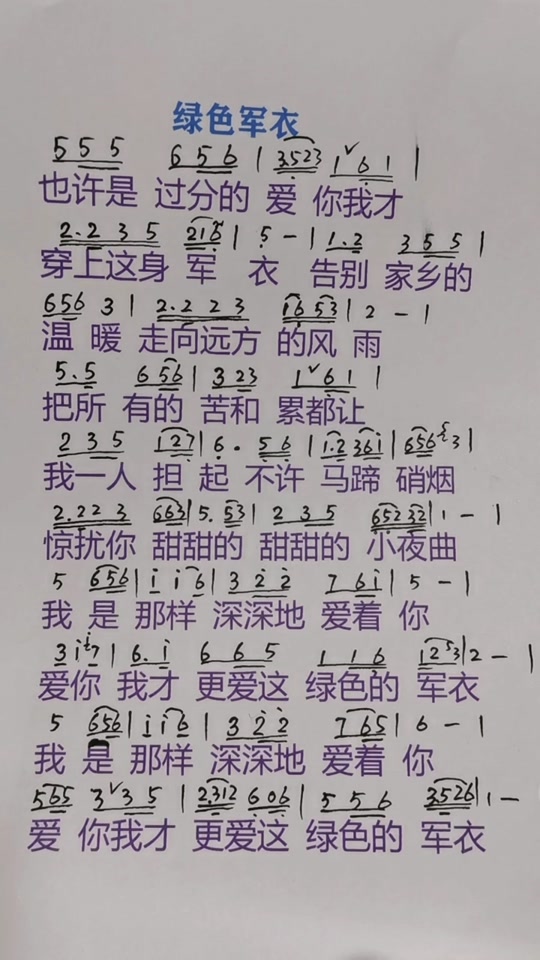 绿色军衣
5 5 5 6 5 6 | 3523 1 6 1 |
也许是 过分的 爱 你我才
2. 2 3 5 216 | 5 - | 1. 2 3 5 5 |
穿上这身 军 衣 告别 家乡的
656 3 | 2. 2 2 3 16 53 | 2 - |
温 暖 走向远方 的风 雨
5. 5 6 56 | 3 23 1 6 1 |
把所 有的 苦和 累都让
2 3 5 127 | 6. 5 6 | 1.2 361 | 656 3 |
我一人 担 起 不许 马蹄 硝烟
2. 2 2 3 663 | 5. 53 | 2 3 5 65232 | 1 - |
惊扰你 甜甜的 甜甜的 小夜曲
5 656 | i i 6 | 3 2 2 7 6 i | 5 - |
我 是 那样 深深地 爱着 你
3 i 7 | 6. i 6 6 5 1 1 6 1253 | 2 - |
爱你 我才 更爱这 绿色的 军衣
5 656 | i i 6 | 3 2 2 7 6 5 | 6 - |
我 是 那样 深深地 爱着 你
565 3 3 5 | 2312 6 06 | 5 5 6 3526 | 1 -
爱 你我才 更爱这 绿色的 军衣